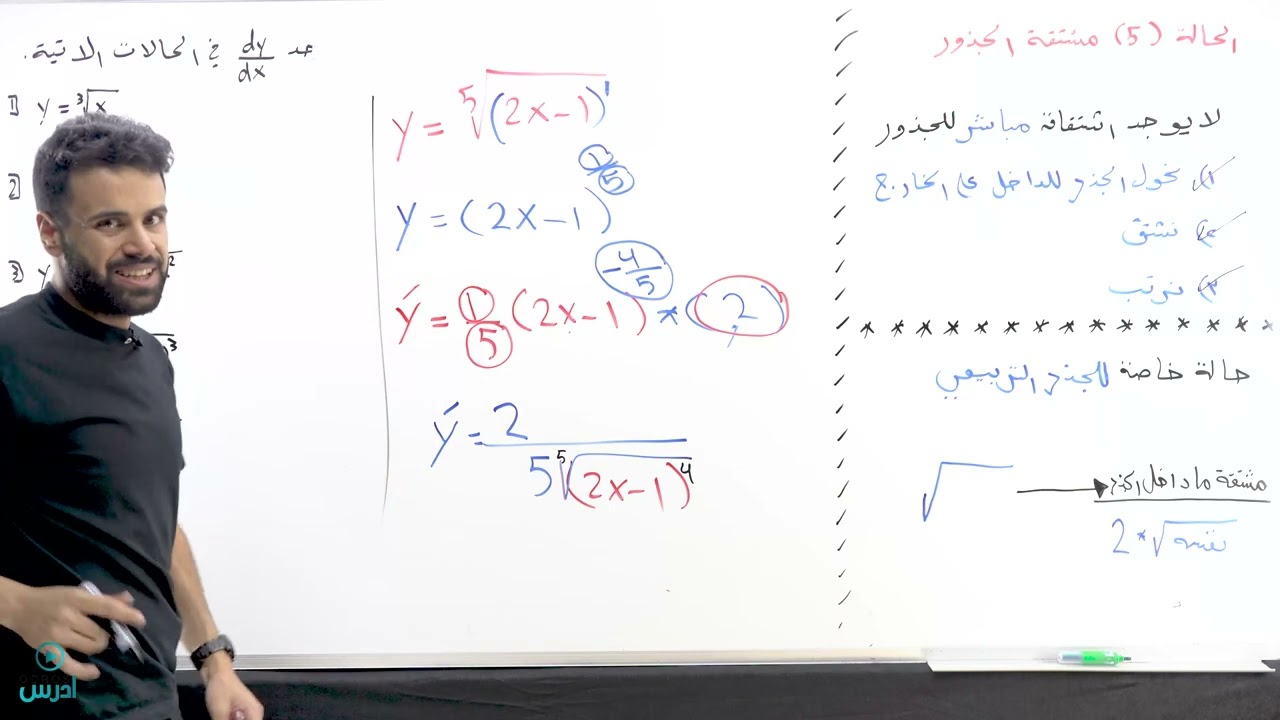 الحالة (5) مشتقة الجذور
لا يوجد اشتقاق مباشر للجذور
1) نحول الجذر للداخل على الخارج
2) نشتق
3) نرتب
* * * * * * * * * * * * * * *
حالة خاصة للجذر التربيعي
√ → مشتقة ما داخل الجذر
2*√نفسه
جد dy/dx في الحالات الاتية.
1) y = ∛x
2)
3) y
y = ⁵√(2x-1)¹
y = (2x-1)^(1/5)
ý = 1/5 (2x-1)^(-4/5) * (2)
ý = 2 / 5 ⁵√(2x-1)⁴
ادرس